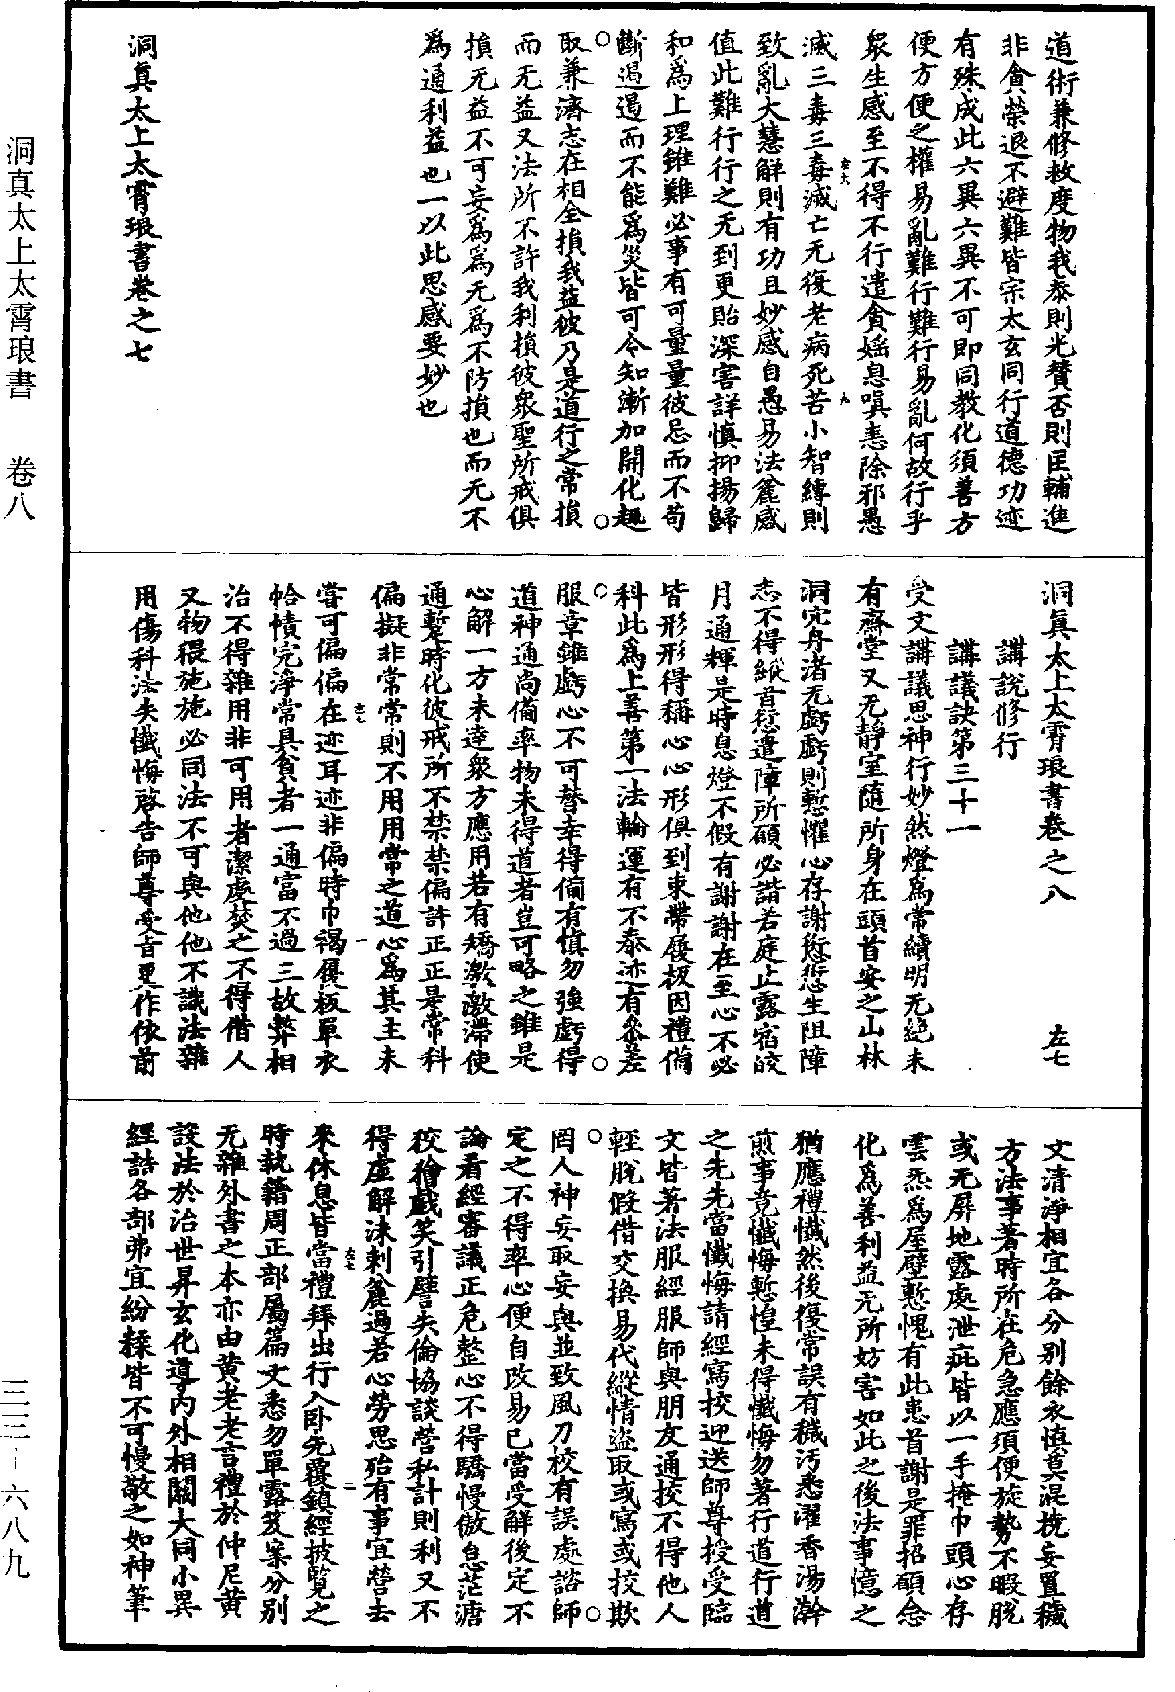 道術兼修救度物我泰則光贊否則匡輔進
非貪榮退不避難皆宗太玄同行道德功迹
有殊成此六異六異不可即同教化須善方
便方便之權易亂難行難行易亂何故行乎
衆生感至不得不行遣貪婬息嗔恚除邪愚
滅三毒三毒滅亡无復老病死苦小智縛則
致亂大慧解則有功且妙感自愚易法麁感
值此難行行之无到更貽深害詳慎抑揚歸
和為上理雖難必事有可量量彼忌而不苟
斷遏遏而不能為災皆可令知漸加開化趣
取兼濟志在相全損我益彼乃是道行之常損
而无益又法所不許我利損彼衆聖所戒俱
損无益不可妄為為无為不防損也而无不
為通利益也一以此思感要妙也
洞真太上太霄琅書卷之七
洞真太上太霄琅書卷之八 左七
講說修行
講議訣第三十一
受文講議思神行妙然燈為常續明无絕未
有齋堂又无靜室隨所身在頭首安之山林
洞穴舟渚无虧虧則慙懼心存謝愆愆生阻障
志不得縱首愆遣障所願必諧若庭止露宿皎
月通輝是時息燈不假有謝謝在至心不必
皆形形得稱心心形俱到束帶履板因禮備
科此為上善第一法輪運有不泰迹有叅差
服章雖虧心不可替幸得備有慎勿強虧得
道神通尚備率物未得道者豈可略之雖是
心解一方未達衆方應用若有矯激激滯使
通蹔時化彼戒所不禁禁偏許正正是常科
偏擬非常常則不用用常之道心為其主未
嘗可偏偏在迹耳迹非偏時巾褐履板單衣
恰幘完淨常具貧者一通富不過三故弊相
治不得雜用非可用者潔處焚之不得借人
又物穢施施必同法不可與他他不識法雜
用傷科法失懺悔啓告師尊受旨更作依前
文清淨相宜各分別餘衣慎莫混挽妄置穢
方法事著時所在危急應須便旋勢不暇脫
或无屏地露處泄疵皆以一手掩巾頭心存
雲炁為屋壁慙愧有此患首謝是罪招願念
化為善利益无所妨害如此之後法事憶之
猶應禮懺然後復常誤有穢污悉濯香湯澣
煎事竟懺悔慙惶未得懺悔勿著行道行道
之先先當懺悔請經寫挍迎送師尊授受臨
文皆著法服經服師與朋友通挍不得他人
輕脫假借交換易代縱情盜取或寫或挍欺
罔人神妄取妄與並致風刀挍有誤處諮師
定之不得率心便自改易已當受解後定不
論看經審議正危整心不得驕慢傲怠茫溏
狡獪戲笑引譬失倫協談營私計則利又不
得虛解沫剌麁過若心勞思殆有事宜營去
來休息皆當禮拜出行入卧先覆鎮經披覽之
時執籍周正部屬篇文悉勿單露笈案分別
无雜外書之本亦由黃老老言禮於仲尼黃
設法於治世昇玄化導内外相關大同小異
經誥各部弗宜紛糅皆不可慢敬之如神筆
洞真太上太霄琅書 卷八
三三－六八九